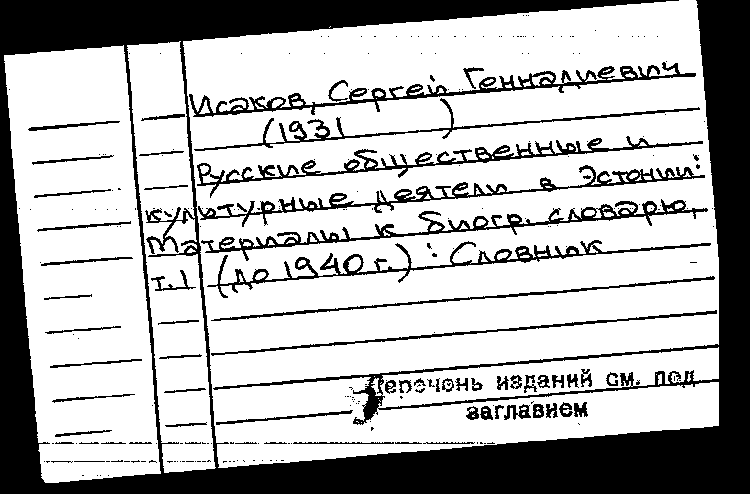 Исаков, Сергей Геннадиевич
(1931 )
Русские общественные и
культурные деятели в Эстонии:
Материалы к биогр. словарю,
т.1 (до 1940 г.) : Словник
Перечень изданий см. под
заглавием